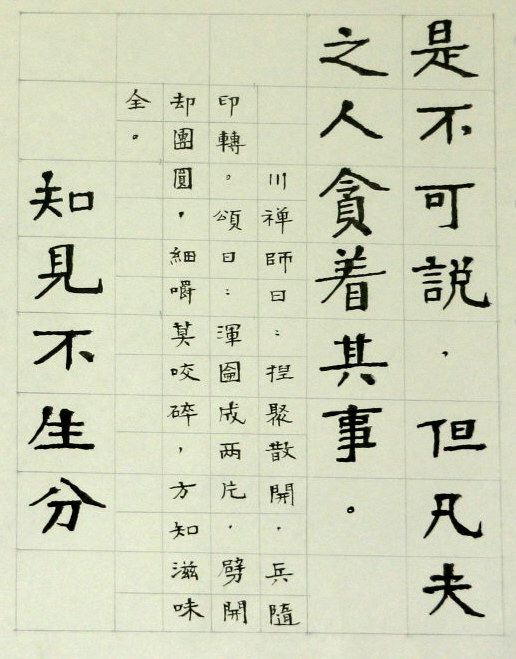 是不可説，但凡夫
之人貪着其事。
川禅師曰：捏聚散開，兵隨
印轉。頌曰：渾圇成两片，劈開
却團圓，細嚼莫咬碎，方知滋味
全。
知見不生分